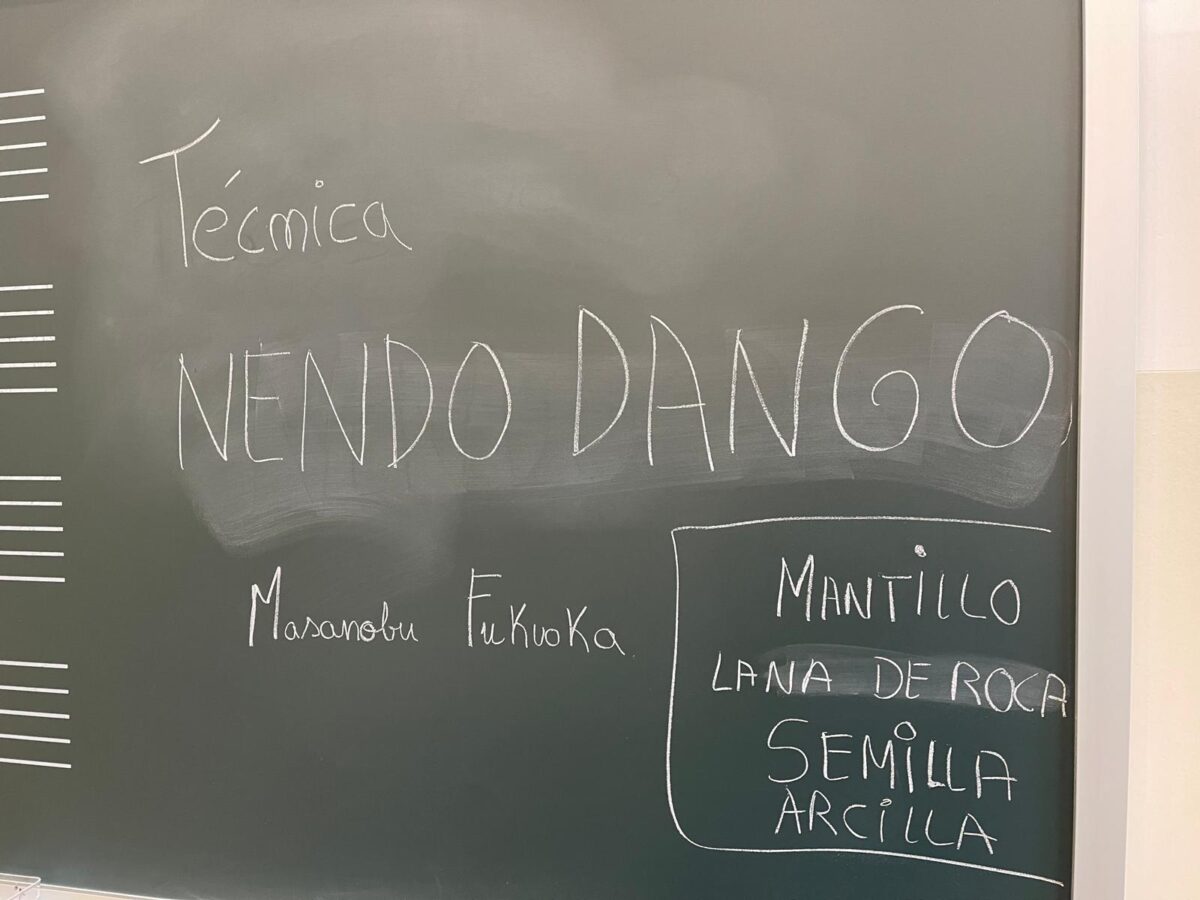 Técnica
NENDO DANGO
Masanobu Fukuoka
MANTiLLO
LANA DE ROCA
SEMiLLA
ARCiLLA